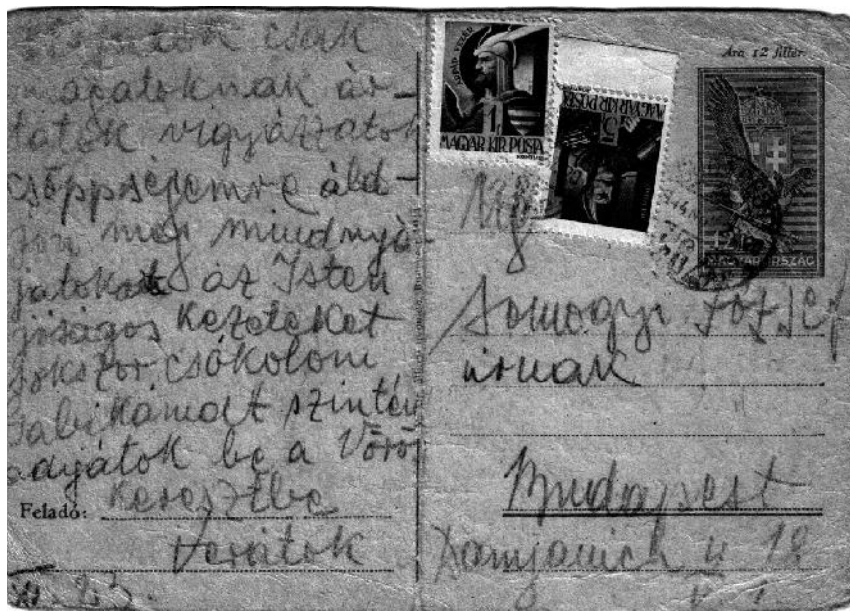 csak
magatoknak ár-
tatok vigyázzatok
csöppségemre áld-
jon meg mindnyá-
jatokat az Isten
jóságos kezeteket
sokszor csókolom
Gabikámat szintén
adjátok be a Vörös
Keresztbe
Feladó:
Veratok
ÁRPÁD VEZÉR
1
MAGYAR KIR. POSTA
MAGYAR KIR. POSTA
5
Ára 12 fillér
12
MAGYARORSZÁG
Somogyi József
úrnak
Budapest
Damjanich u 12